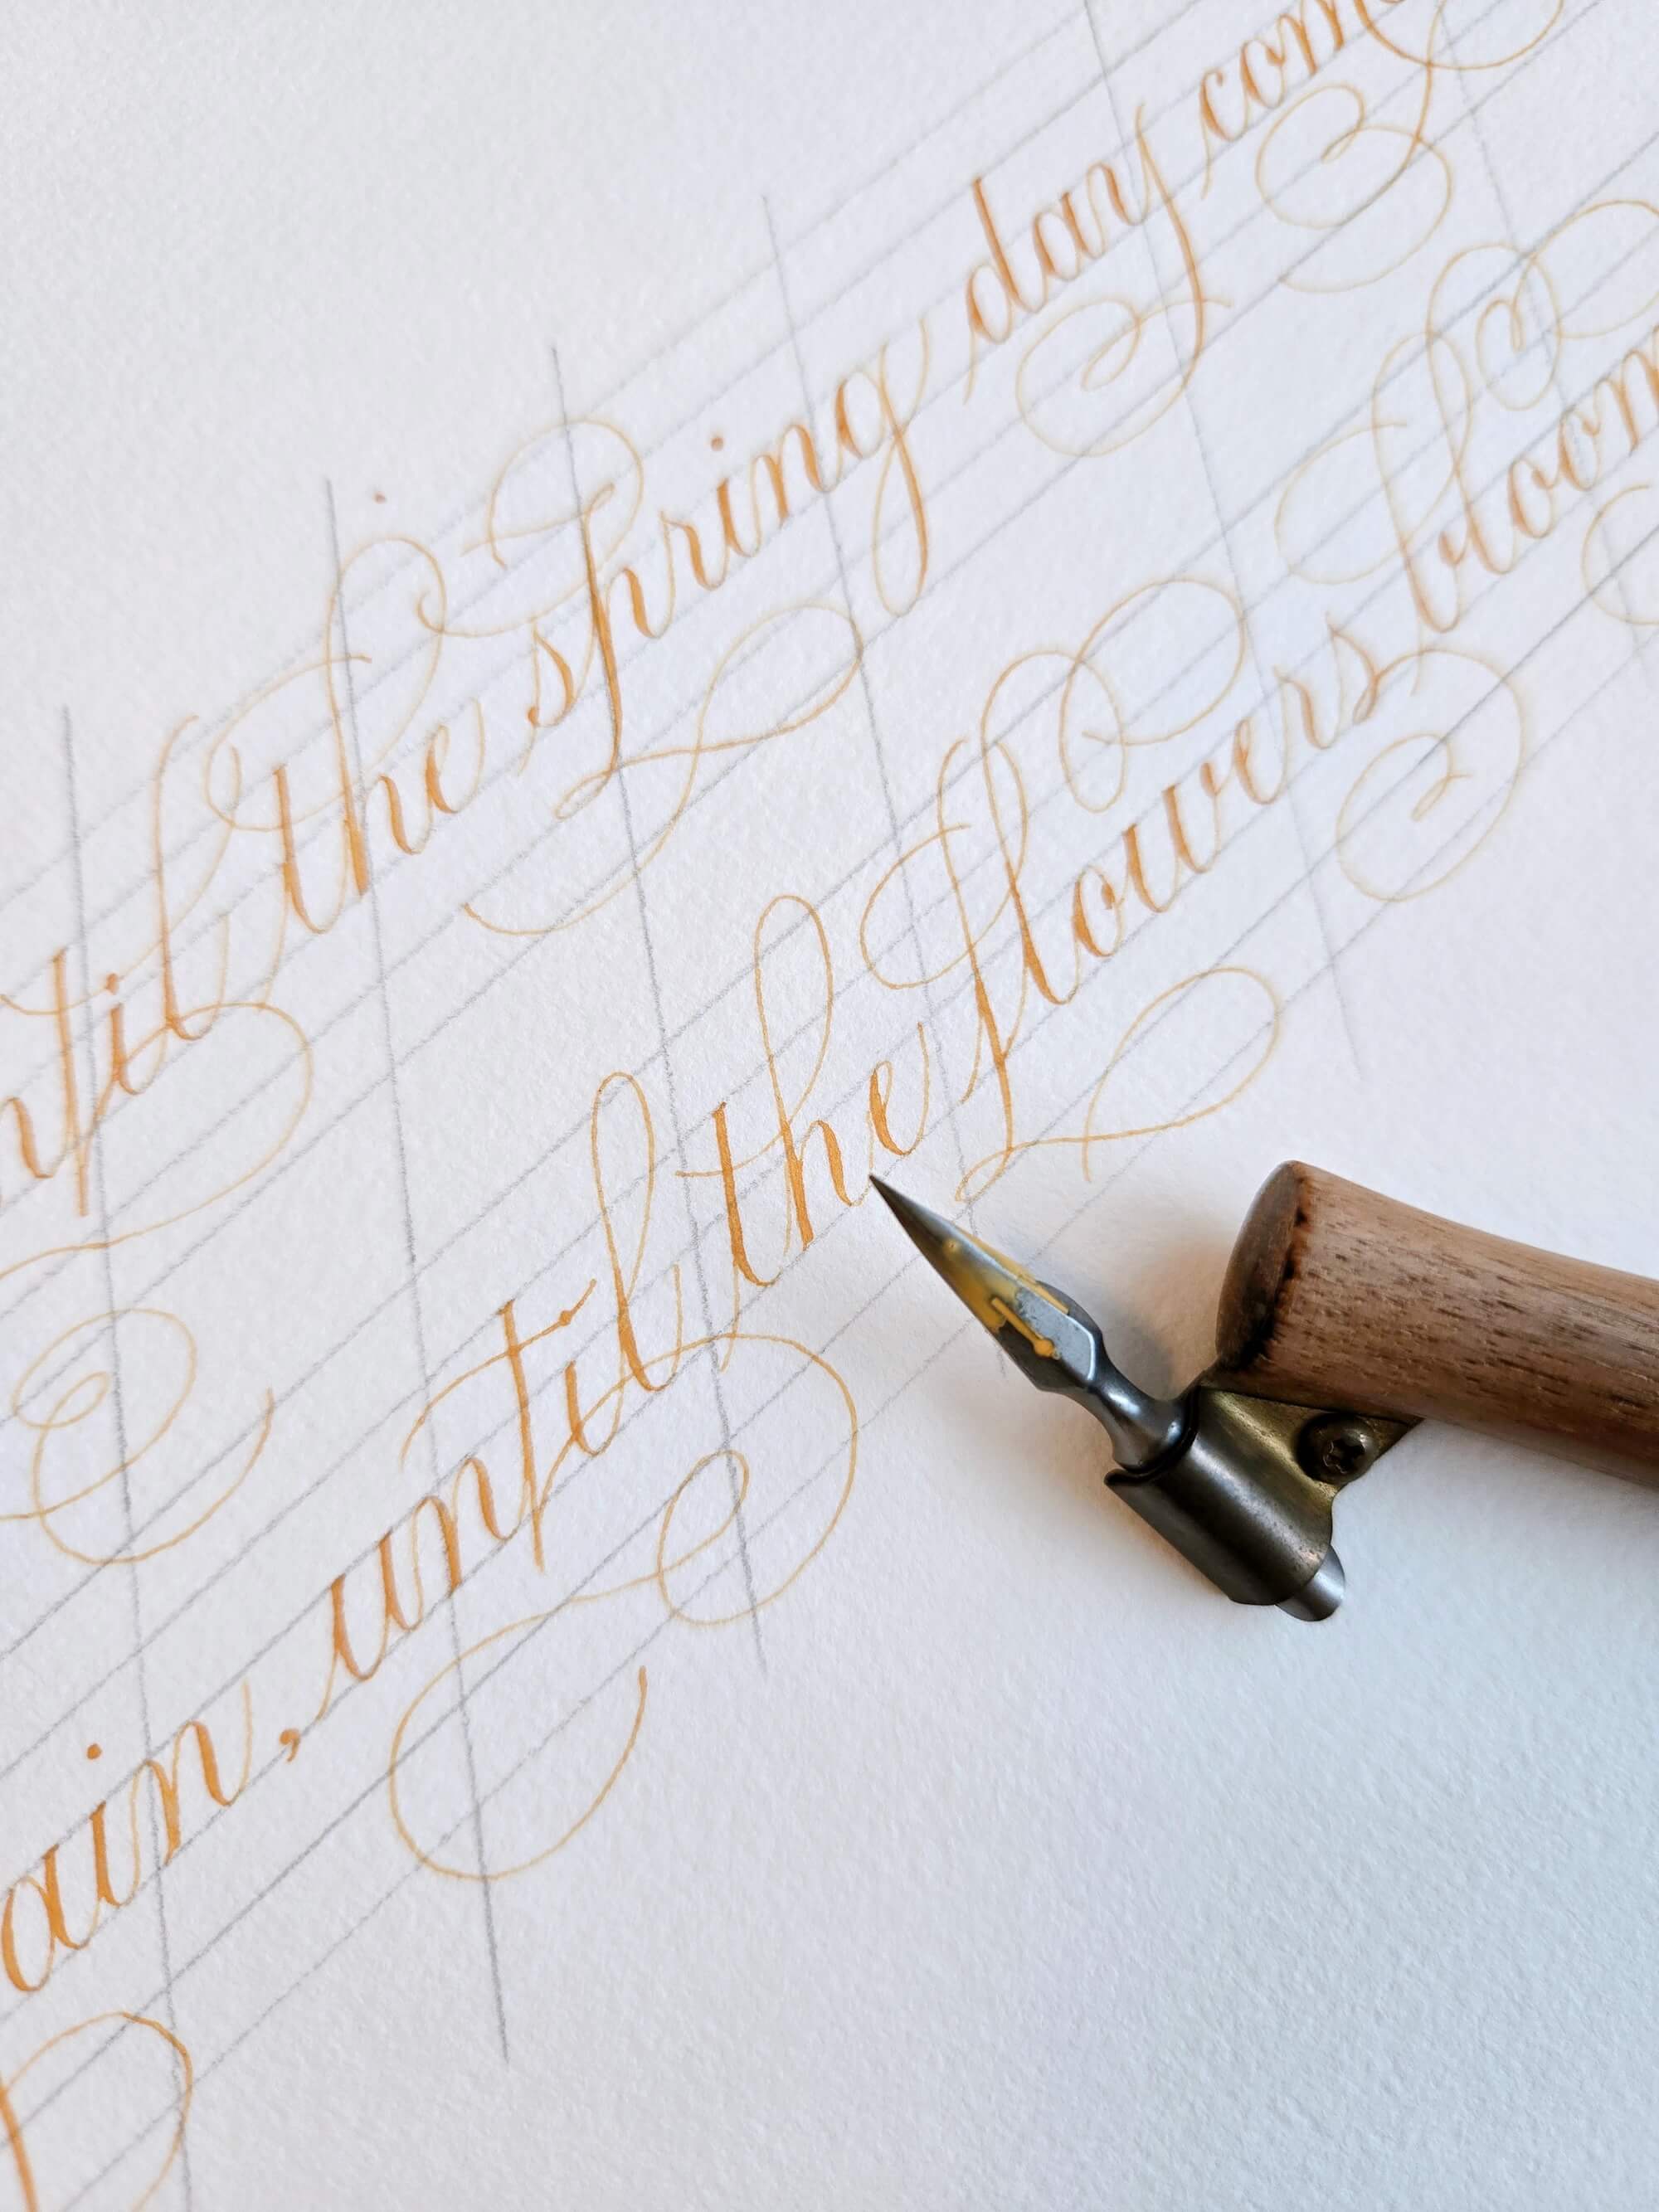 ntil the spring day com
ain, until the flowers bloom